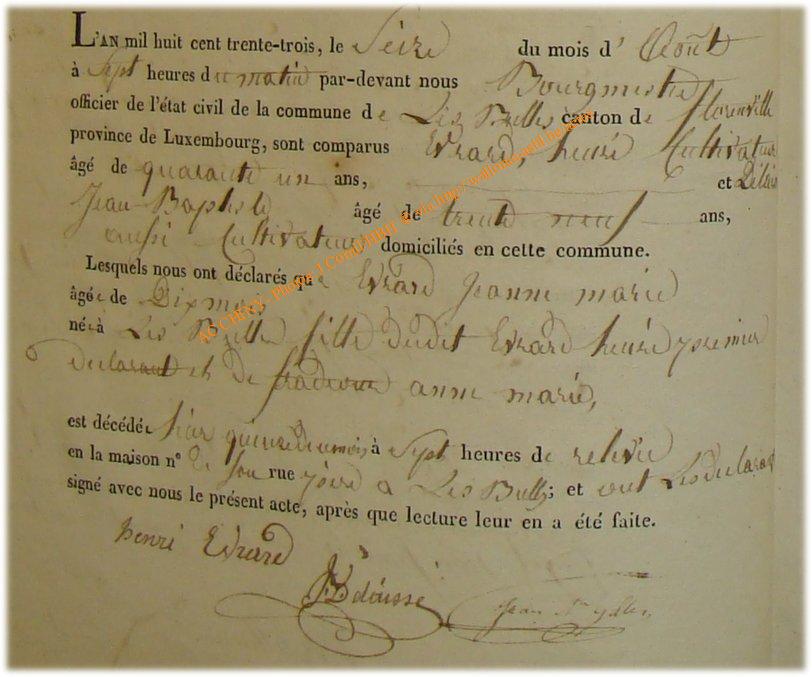 L'AN mil huit cent trente-trois, le Seize du mois d' Août
à Sept heures du matin par-devant nous Bourgmestre
officier de l'état civil de la commune de Les Bulles canton de florenville
province de Luxembourg, sont comparus Evrard, henri Cultivateur
âgé de quarante un ans, et
Jean Baptiste âgé de trente neuf ans,
aussi Cultivateur domiciliés en cette commune.
Lesquels nous ont déclarés que Evrard Jeanne marie
âgée de Dix mois
née à Les Bulles fille dudit Evrard henri premier
declarant et de anne marie,
est décédée hier quinze du mois, à Sept heures de relevée
en la maison n° de son rue père a Les Bulles; et ont Les declarant
signé avec nous le présent acte, après que lecture leur en a été faite.
henri Evrard
Jean